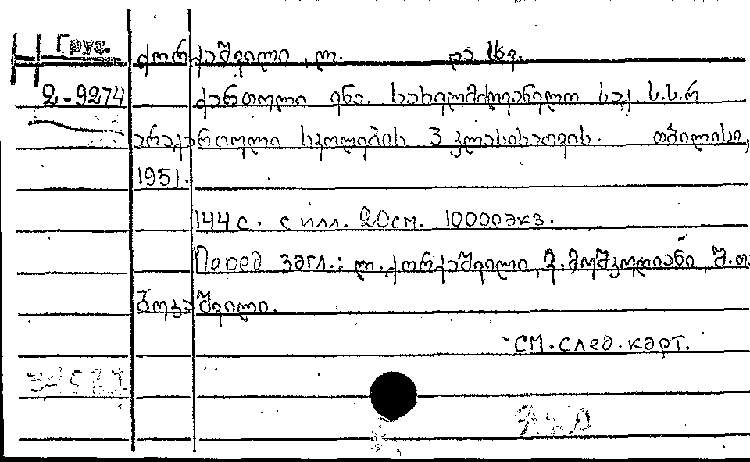 Груз. ქორქაშვილი, ლ. და სხვ.
2-9274 ქართული ენა. სახელმძღვანელო საქ. ს.ს.რ
არაქართული სკოლების 3 კლასისათვის. თბილისი,
1951.
144 с. с илл. 20 см. 10000 экз.
Перед загл.: ლ. ქორქაშვილი, შ. თ.
შვილი.
См. след. карт.